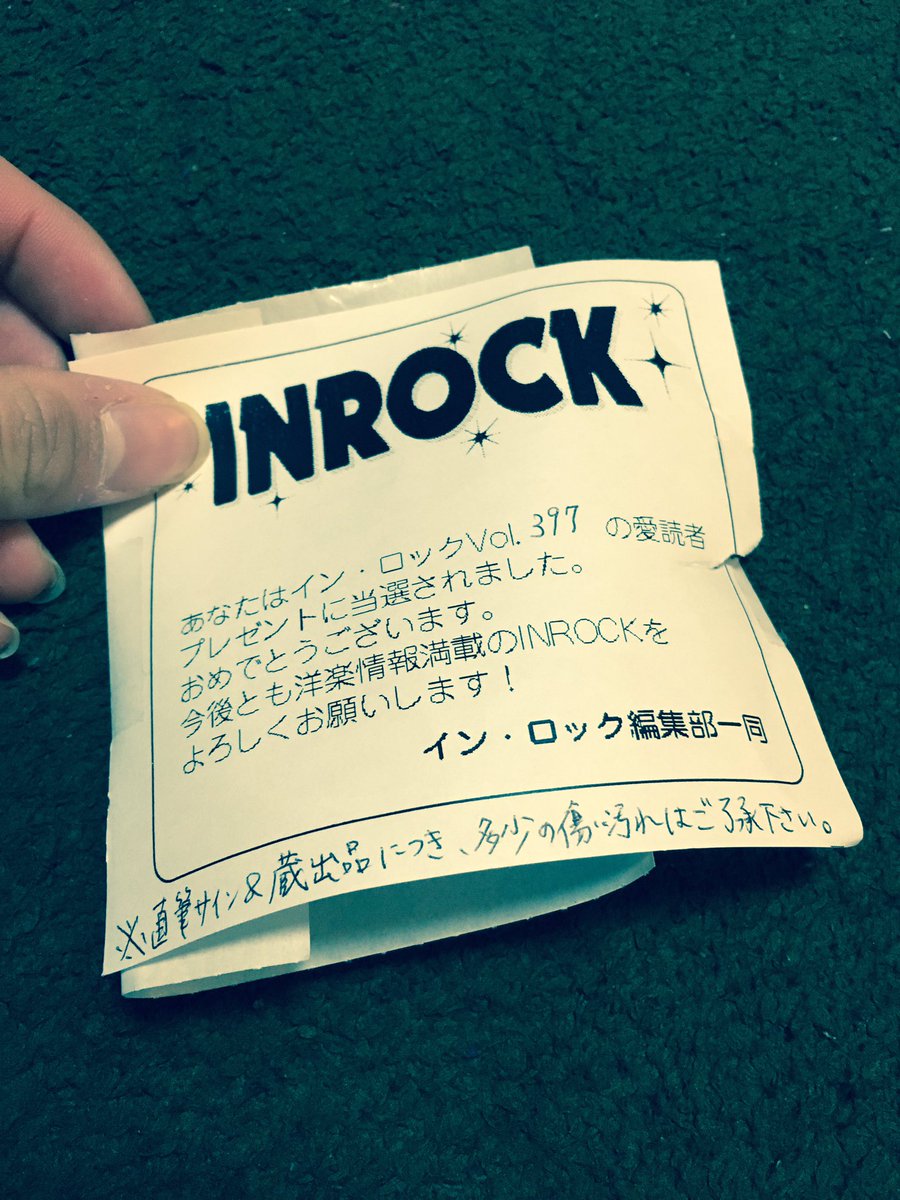 INROCK
あなたはイン・ロックVol. 397 の愛読者
プレゼントに当選されました。
おめでとうございます。
今後とも洋楽情報満載のINROCKを
よろしくお願いします!
イン・ロック編集部一同
※直筆サイン&蔵出品につき、多少の傷、汚れはご了承下さい。